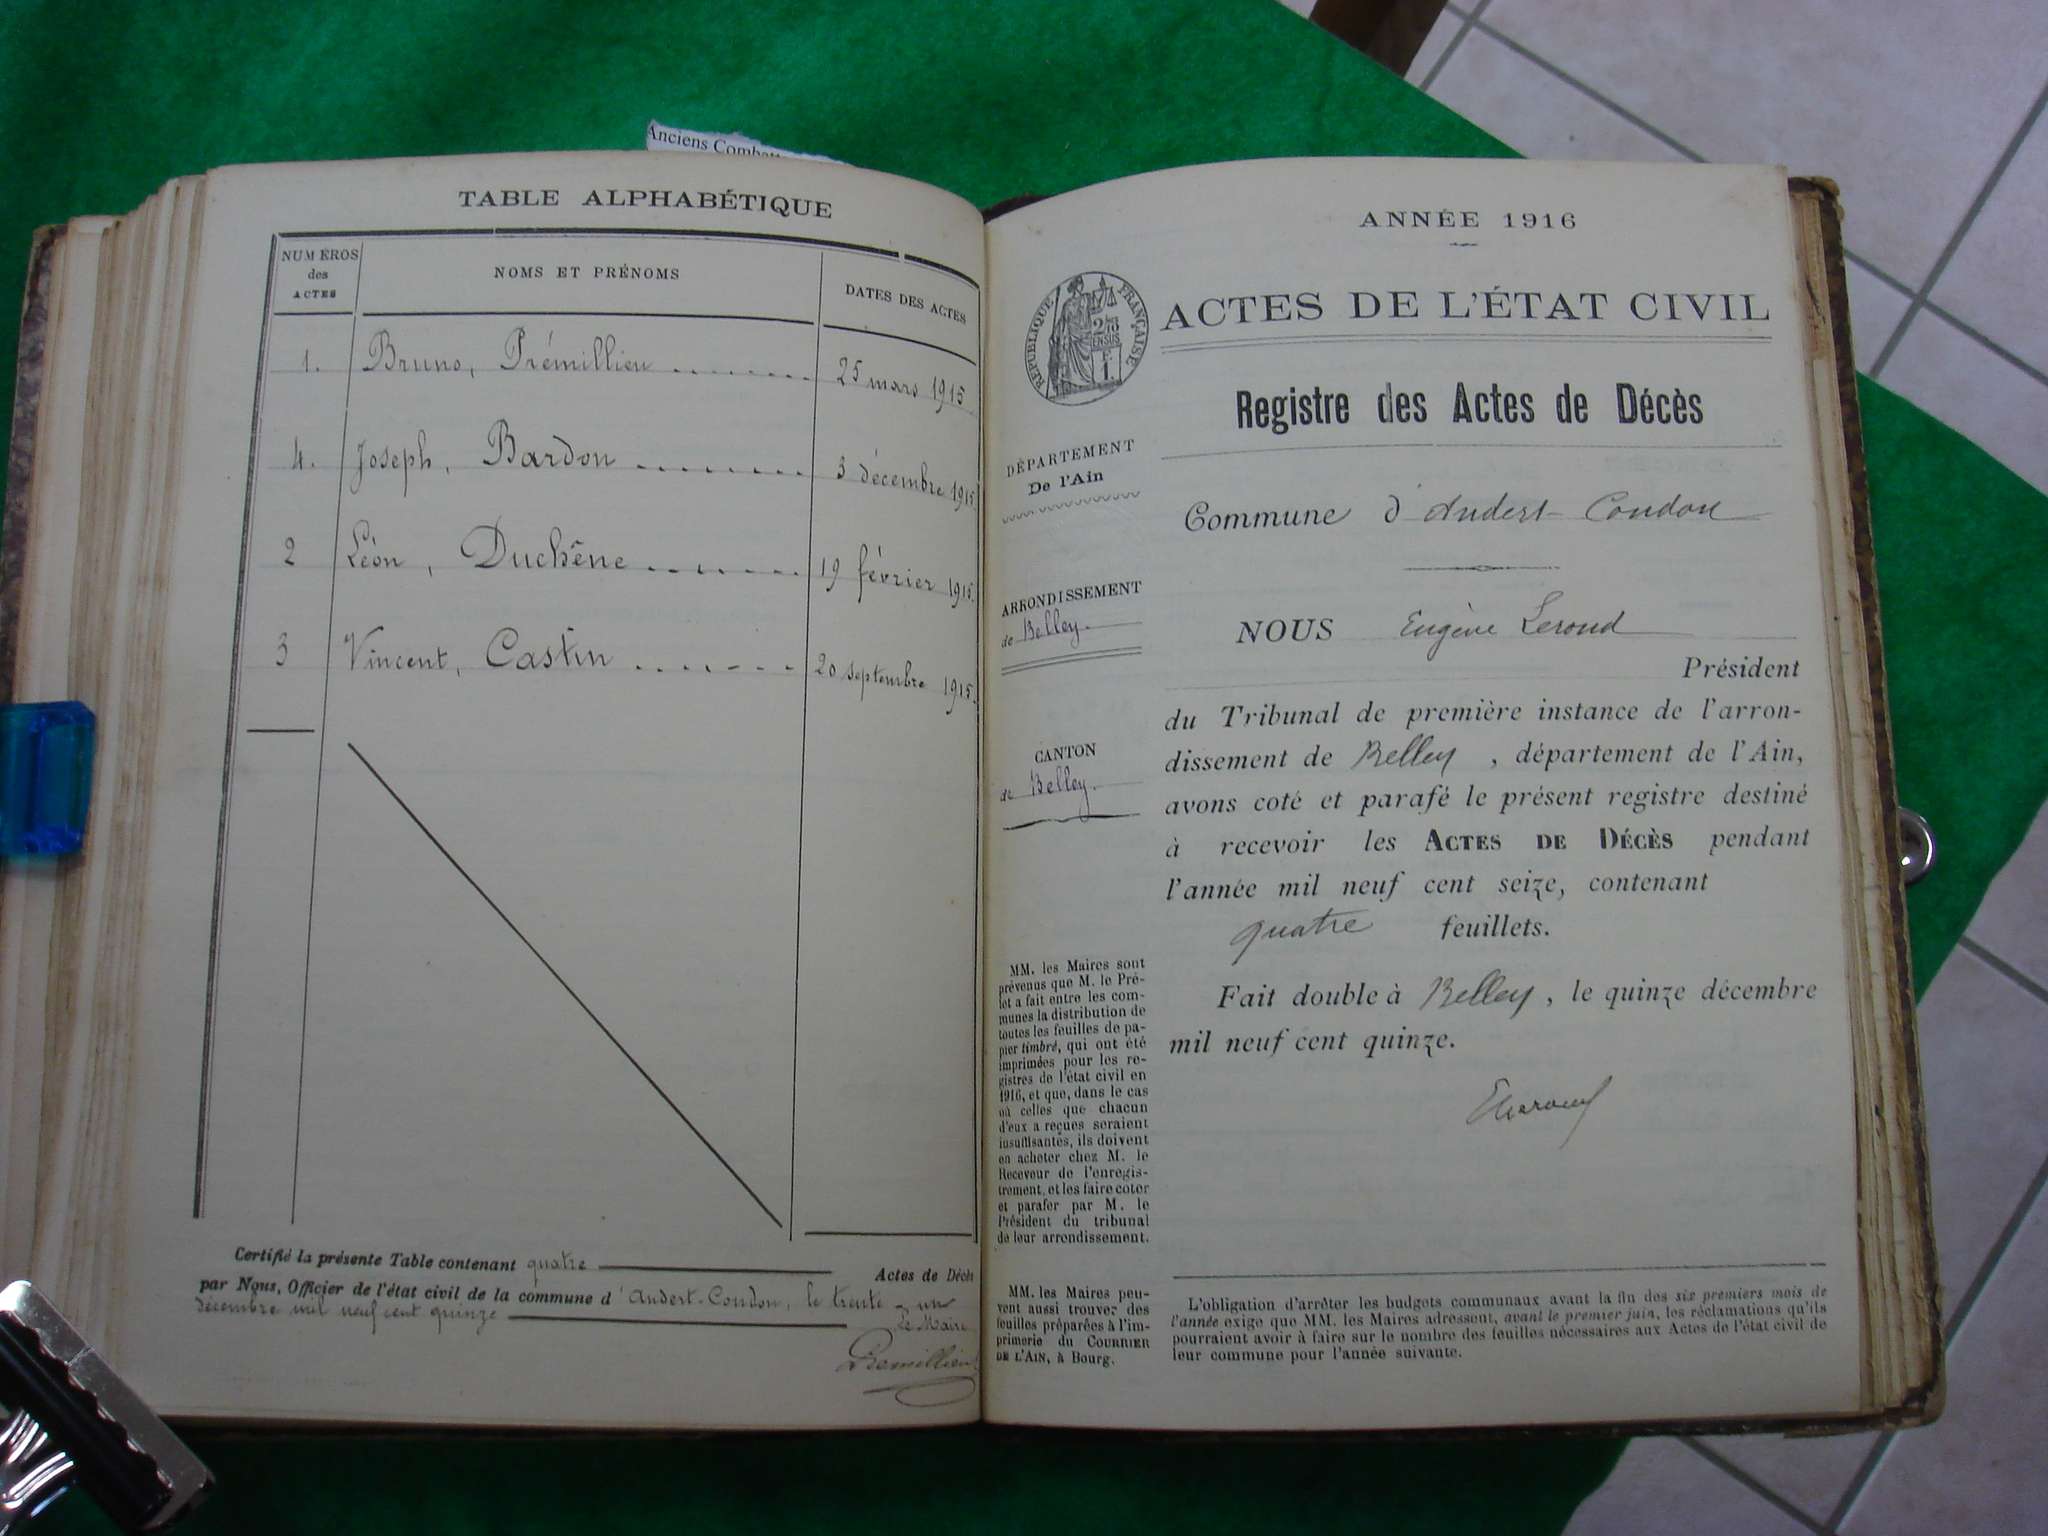 Anciens Combatt
TABLE ALPHABÉTIQUE
NUMÉROS
des
ACTES
NOMS ET PRÉNOMS
DATES DES ACTES
1. Bruno, Prémillieu 25 mars 1915
4. Joseph, Bardon 3 décembre 1915
2 Léon, Duchêne 19 février 1915.
3 Vincent, Castin 20 septembre 1915.
Certifié la présente Table contenant quatre Actes de Décè
par Nous, Officier de l'état civil de la commune d'Andert-Condon, le trente-un
décembre mil neuf cent quinze
Le Maire
Prémillieu
ANNÉE 1916
RÉPUBLIQUE FRANÇAISE
ACTES DE L'ÉTAT CIVIL
Registre des Actes de Décès
DÉPARTEMENT
De l'Ain
Commune d'Andert-Condon
ARRONDISSEMENT
de Belley.
NOUS Eugène Leroud
Président
du Tribunal de première instance de l'arron-
dissement de Belley, département de l'Ain,
avons coté et parafé le présent registre destiné
à recevoir les ACTES DE DÉCÈS pendant
l'année mil neuf cent seize, contenant
quatre feuillets.
Fait double à Belley, le quinze décembre
mil neuf cent quinze.
CANTON
de Belley.
MM. les Maires sont
prévenus que M. le Pré-
fet a fait entre les com-
munes la distribution de
toutes les feuilles de pa-
pier timbré, qui ont été
imprimées pour les re-
gistres de l'état civil en
1916, et que, dans le cas
où celles que chacun
d'eux a reçues seraient
insuffisantes, ils doivent
en acheter chez M. le
Receveur de l'enregis-
trement, et les faire coter
et parafer par M. le
Président du tribunal
de leur arrondissement.
MM. les Maires peu-
vent aussi trouver des
feuilles préparées à l'im-
primerie du COURRIER
DE L'AIN, à Bourg.
L'obligation d'arrêter les budgets communaux avant la fin des six premiers mois de
l'année exige que MM. les Maires adressent, avant le premier juin, les réclamations qu'ils
pourraient avoir à faire sur le nombre des feuilles nécessaires aux Actes de l'état civil de
leur commune pour l'année suivante.